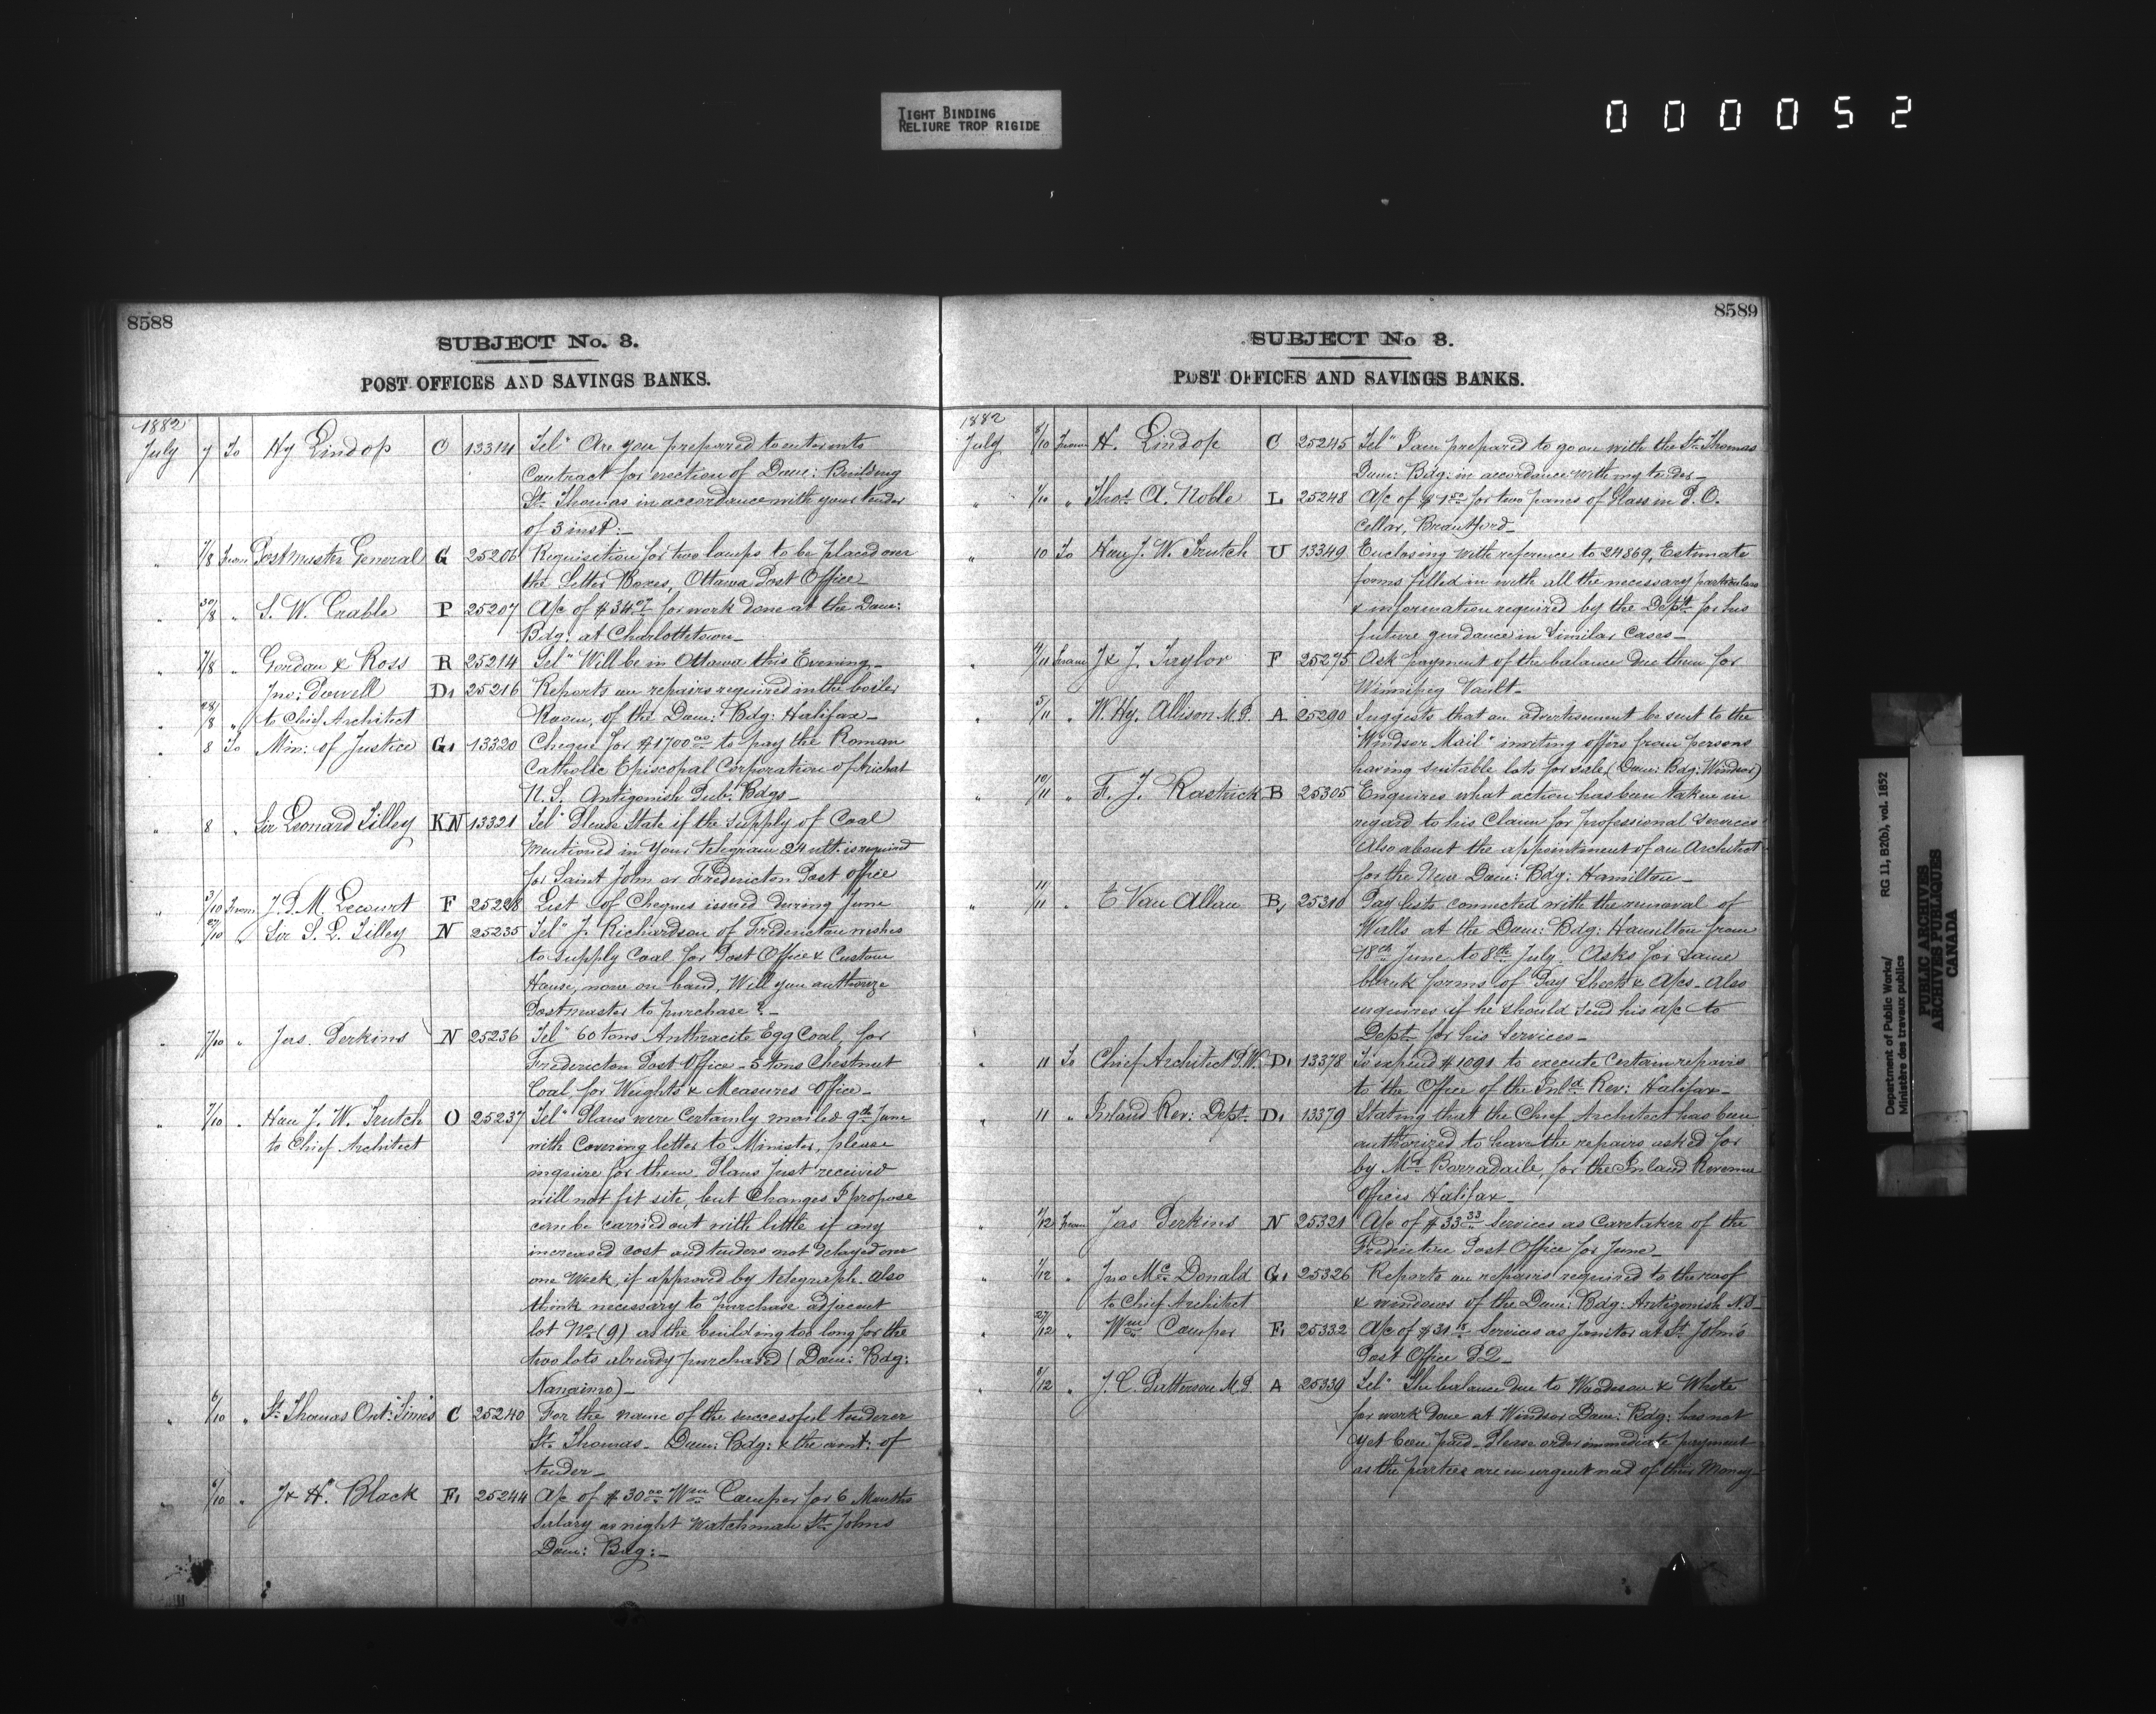 TIGHT BINDING
RELIURE TROP RIGIDE
000052
8588
SUBJECT No. 3.
POST OFFICES AND SAVINGS BANKS.
1882
July 7 To Hy Lindop O 13314 Tel" Are you prepared to enter into
Contract for erection of Dom: Building
St. Thomas in accordance with your tender
of 3 inst:—
" 7/8 From Postmaster General G 25206 Requisition for two lamps to be placed over
the Letter Boxes, Ottawa Post Office—
" 30/8 " S. W. Crabbe P 25207 A/c of $34.07 for work done at the Dom:
Bdg: at Charlottetown—
" 7/8 " Gordon & Ross R 25214 Tel" Will be in Ottawa this Evening—
Jno: Dowell D1 25216 Reports on repairs required in the boiler
" 28/8 " to Chief Architect Room, of the Dom: Bdg: Halifax—
" 8 To Min: of Justice G1 13320 Cheque for $1700.00 to pay the Roman
Catholic Episcopal Corporation of Arichat
N.S. Antigonish Pub. Bdgs—
" 8 " Sir Leonard Tilley KN 13321 Tel" Please State if the supply of Coal
mentioned in your telegram 24 ult. is required
for Saint John or Fredericton Post Office
" 3/10 From J. P. M. Lecourt F 25228 List of Cheques issued during June
" 27/10 " Sir S. L. Tilley N 25235 Tel" J. Richardson of Fredericton wishes
to supply Coal for Post Office & Custom
House, none on hand, Will you authorize
Postmaster to purchase?—
" 7/10 " Jas. Perkins N 25236 Tel" 60 tons Anthracite Egg Coal, for
Fredericton Post Office—5 tons Chestnut
Coal for Weights & Measures Office—
" 7/10 " Hon J. W. Trutch O 25237 Tel" Plans were certainly mailed 9th June
to Chief Architect with Covering letter to Minister, please
inquire for them. Plans just received
will not fit site, but changes I propose
can be carried out with little if any
increased cost and tenders not delayed over
one Week, if approved by telegraph. Also
think necessary to purchase adjacent
lot No. (9) as the building too long for the
two lots already purchased (Dom: Bdg:
Nanaimo)—
" 6/10 " St. Thomas Ont: Times C 25240 For the name of the successful tenderer
St. Thomas— Dom: Bdg: & the amt: of
tender—
" 6/10 " J & H. Black F1 25244 A/c of $30.00 Wm Camper for 6 Months
Salary as night Watchman St. Johns
Dom: Bdg:—
8589
SUBJECT No 3.
POST OFFICES AND SAVINGS BANKS.
1882
July 8/10 From H. Lindop C 25245 Tel" I am prepared to go on with the St. Thomas
Dom: Bdg: in accordance with my tender—
" 7/10 " Thos. A. Noble L 25248 A/c of $1.50 for two panes of Glass in P. O.
Cellar, Brantford—
" 10 To Hon J. W. Trutch U 13349 Enclosing with reference to 24869, Estimate
forms filled in with all the necessary particulars
& information required by the Dept. for his
future guidance in Similar Cases—
" 11 From J & J. Taylor F 25275 Ask payment of the balance due them for
Winnipeg Vault—
" 5/11 " W. Hy. Allison M.P. A 25290 Suggests that an advertisement be sent to the
"Windsor Mail" inviting offers from persons
having suitable lots for sale, (Dom: Bdg: Windsor)
" 10/11 " F. J. Rastrick B 25305 Enquires what action has been taken in
regard to his Claim for professional services
Also about the appointment of an Architect
for the New Dom: Bdg: Hamilton—
" 11/11 " E Van Allen B1 25310 Pay lists connected with the removal of
Walls at the Dom: Bdg: Hamilton from
18th June to 8th July. Asks for some
blank forms of Pay Sheets & A/cs— Also
enquires if he should send his a/c to
Dept. for his Services—
" 11 To Chief Architect P.W. D1 13378 To expend $1091 to execute Certain repairs
to the Office of the Inld. Rev: Halifax—
" 11 " Inland Rev: Dept. D1 13379 Stating that the Chief Architect has been
authorized to have the repairs asked for
by Mr. Borradaile, for the Inland Revenue
Offices Halifax—
" 1/12 From Jas Perkins N 25321 A/c of $33.33 Services as Caretaker of the
Fredericton Post Office for June—
" 7/12 " Jno McDonald G1 25326 Reports on repairs required to the roof
to Chief Architect & windows of the Dom: Bdg: Antigonish N.S—
" 27/12 " Wm Camper F1 25332 A/c of $31.18 Services as Janitor at St. John's
Post Office P.Q—
" 8/12 " J. C. Patterson M.P. A 25339 Tel" The balance due to Woodison & White
for work done at Windsor Dom: Bdg: has not
yet been paid— Please order immediate payment
as the parties are in urgent need of their Money—
Department of Public Works/ RG 11, B2(b), vol. 1852
Ministère des travaux publics
PUBLIC ARCHIVES
ARCHIVES PUBLIQUES
CANADA